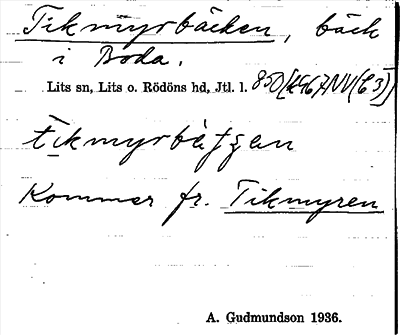 Tikmyrbäcken, bäck
i Boda.
Lits sn, Lits o. Rödöns hd, Jtl. l.
tikmyrbä
Kommer fr. Tikmyren
A. Gudmundson 1936.